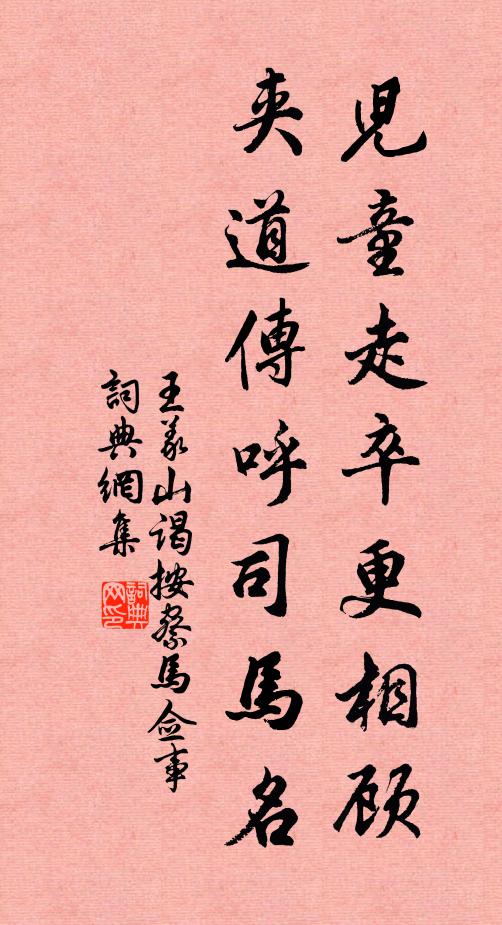 兒童走卒更相顾
夾道傳呼司馬名
王义山谒按察馬佥事
詞典網集
詞典网印